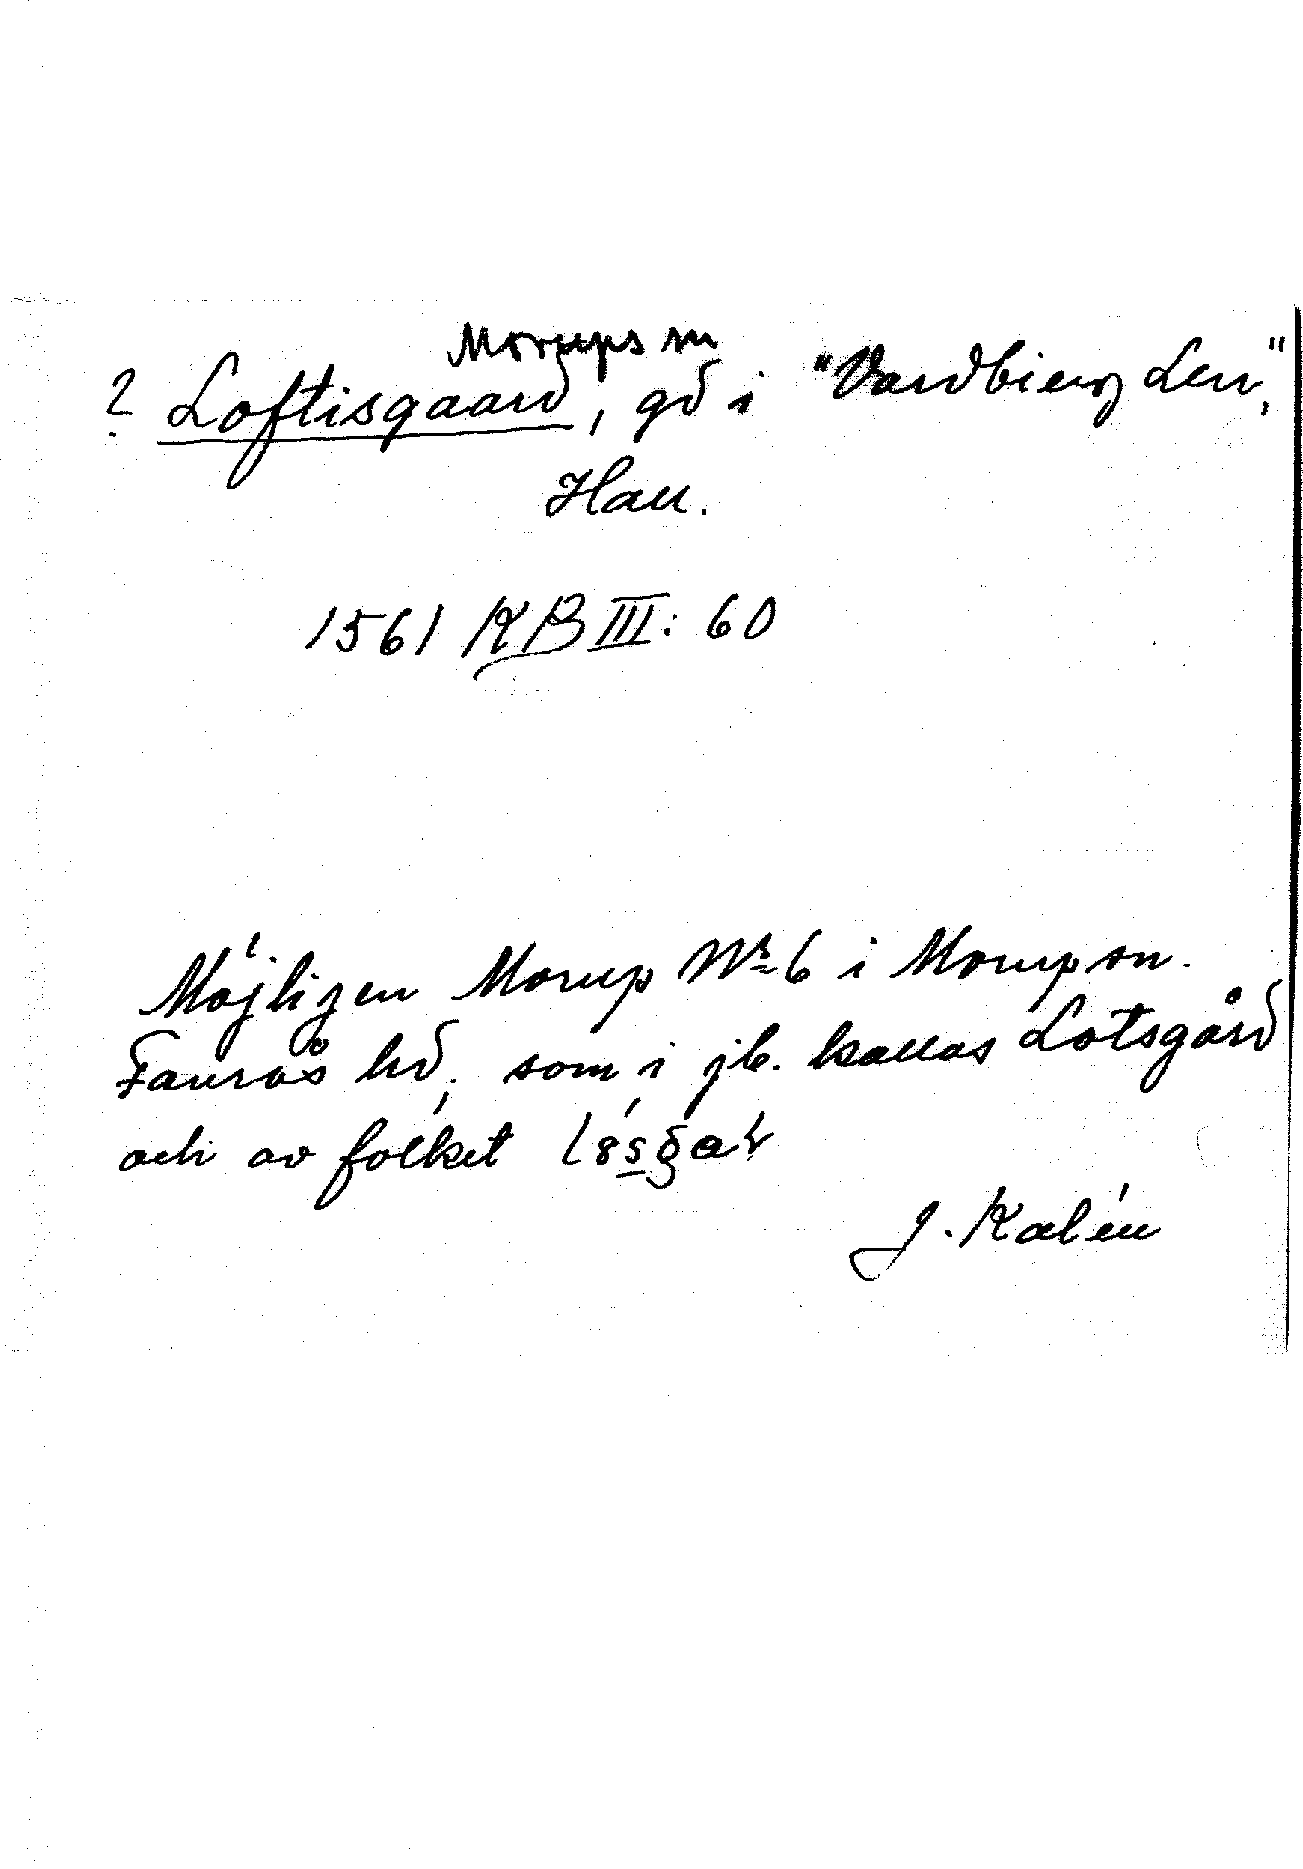 Morups sn
? Loftisgaard, gd i "Vardbierg Len",
Hall.
1561 KB III: 60
Möjligen Morup Nr 6 i Morup sn.
Faurås hd, som i jb. kallas Lotsgård
och av folket
J. Kalén